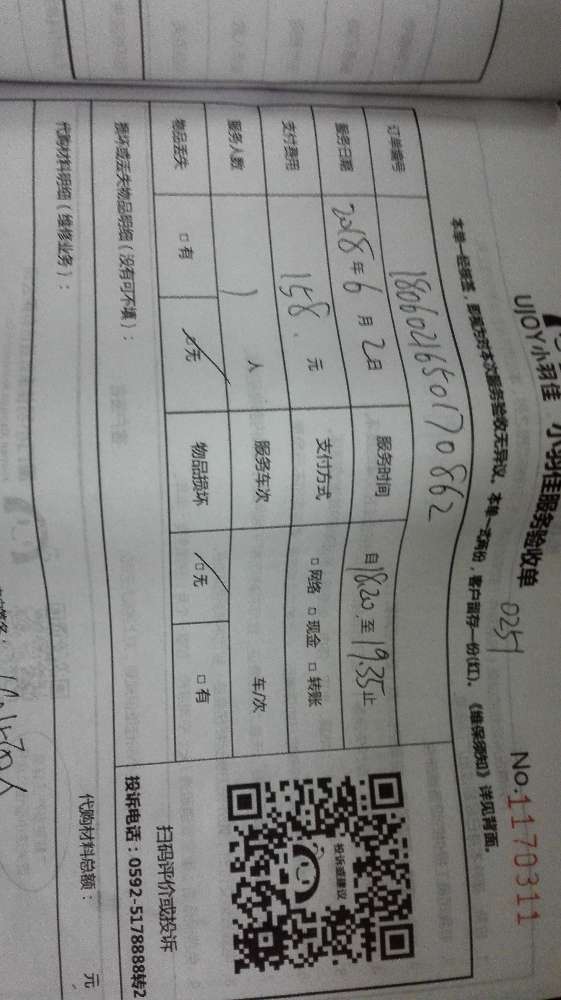 UJOY小羽佳 小羽佳服务验收单 0251 No.1170311
本单一经签署，即视为对本次服务验收无异议。本单一式两份，客户留存一份(红)。《维保须知》详见背面。
订单编号 1806021650170862
服务日期 2018年6月2日 服务时间 自18:20至19:35止
支付费用 158.元 支付方式 □网络 □现金 □转账
服务人数 1人 服务车次 车/次
物品丢失 □有 □无 物品损坏 □无 □有
损坏或丢失物品明细（没有可不填）：
代购材料明细（维修业务）：
代购材料总额： 元
投诉或建议
扫码评价或投诉
投诉电话：0592-5178888转2